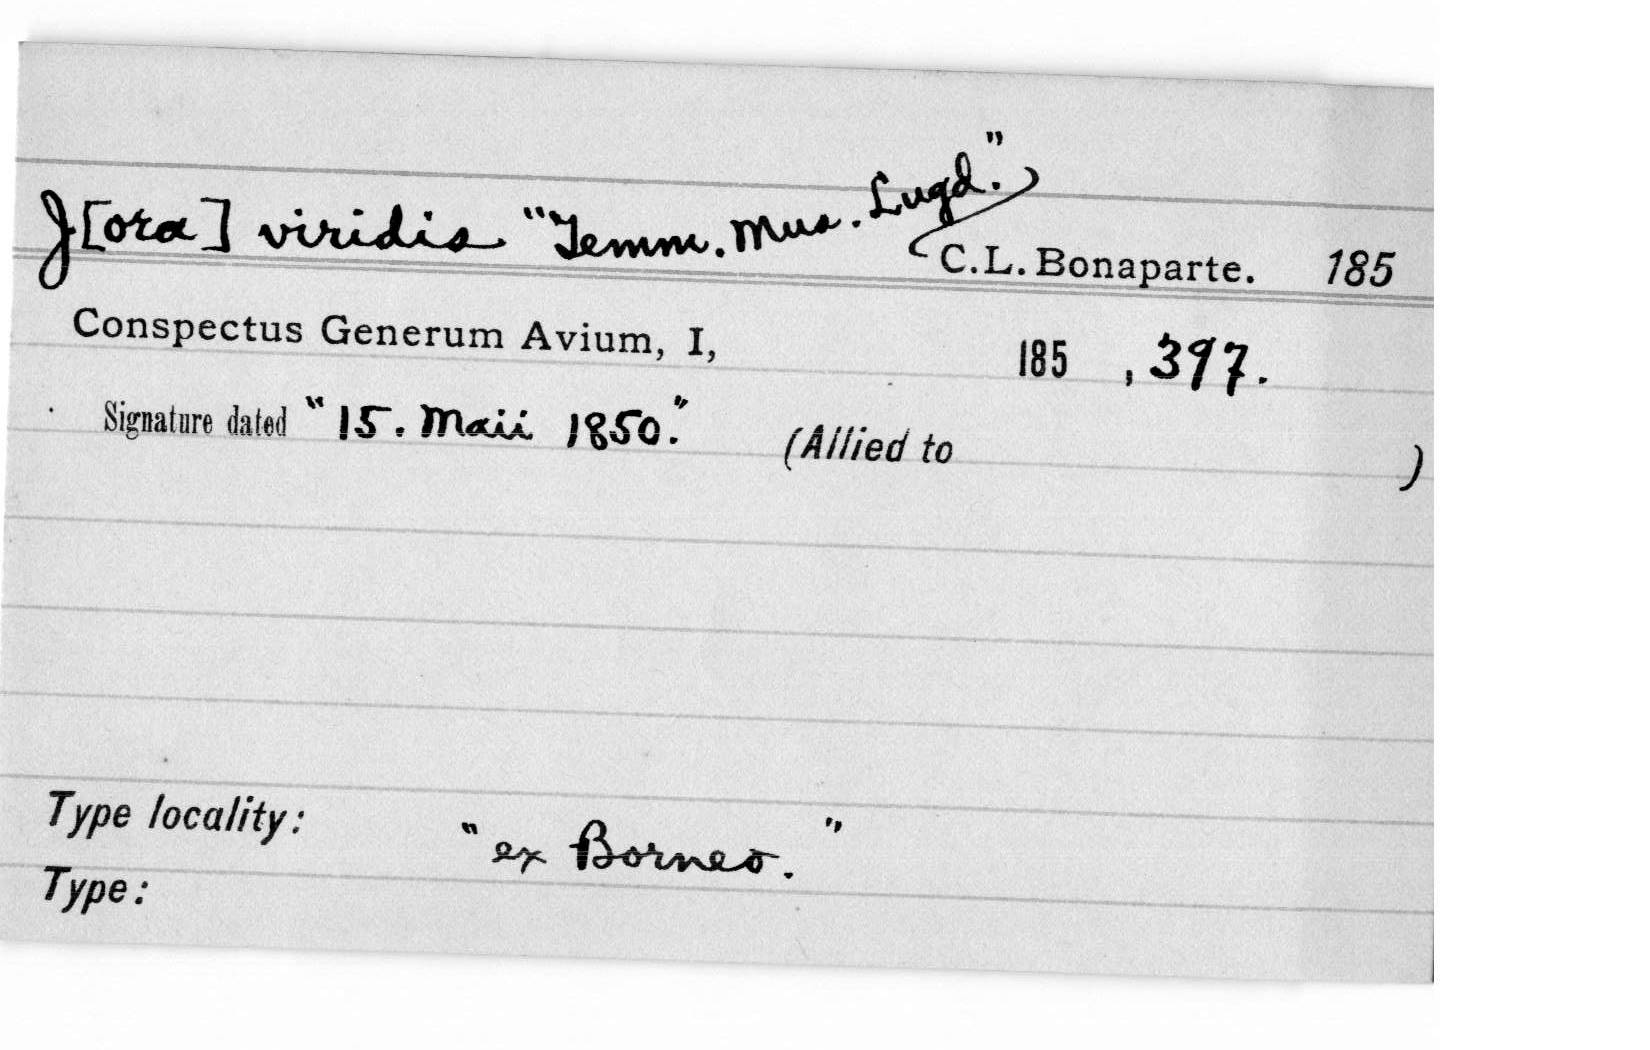 J[ora] viridis "Temm. Mus. Lugd."
C.L. Bonaparte. 185
Conspectus Generum Avium, I, 185 , 397.
Signature dated "15. Maii 1850." (Allied to )
Type locality: "ex Borneo."
Type: